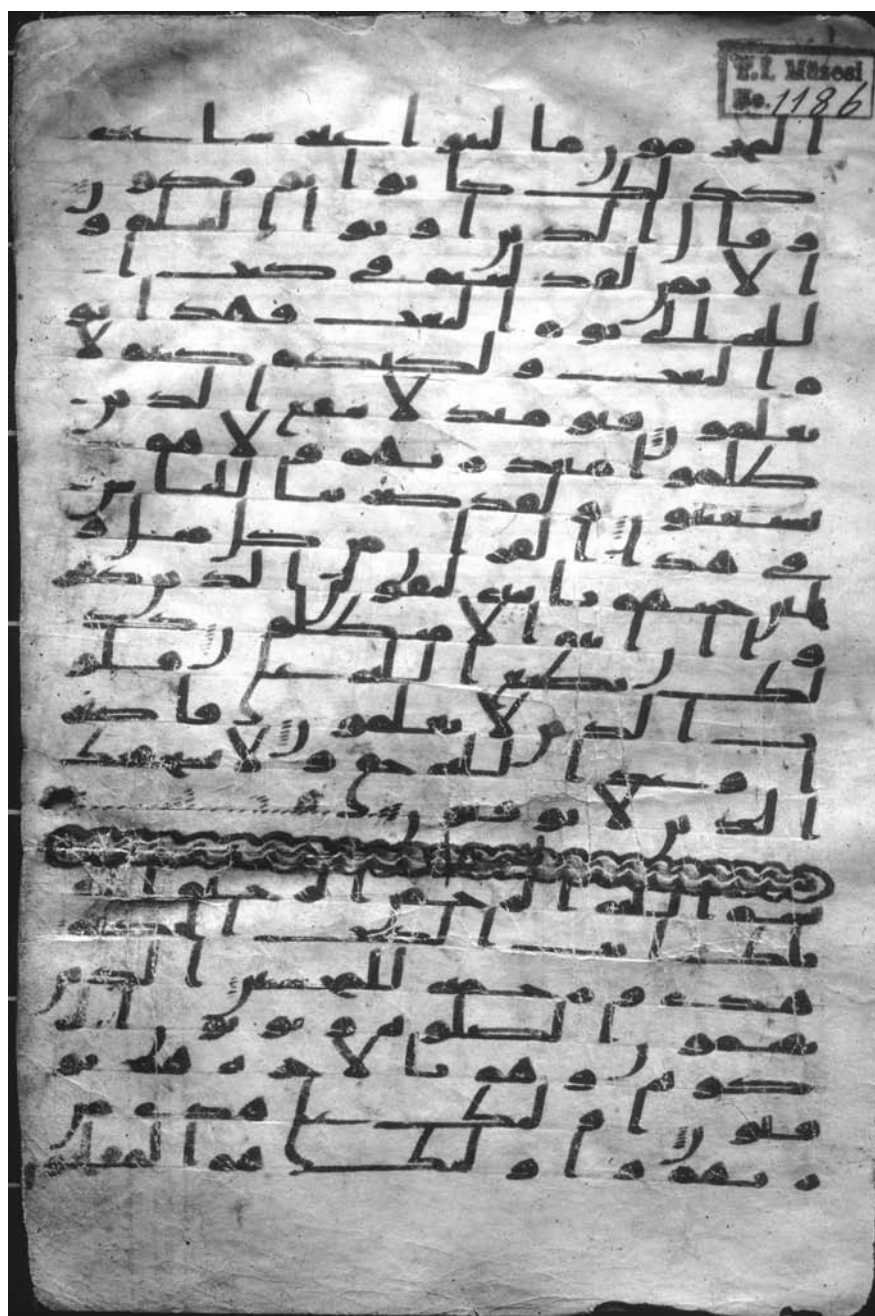 T.İ. Müzesi
No. 1186
المجرمون ما لبثوا غير ساعة
كذلك كانوا يوفكون
وقال الذين اوتوا العلم و
الايمن لقد لبثتم في كتب ا
لله الى يوم البعث فهذا يو
م البعث ولكنكم كنتم لا
تعلمون فيومئذ لا ينفع الذين
ظلموا معذرتهم ولا هم
يستعتبون ولقد ضربنا للناس
في هذا القران من كل مثل و
لئن جئتهم باية ليقولن الذين
كفروا ان انتم الا مبطلون كذ
لك يطبع الله على قلو
ب الذين لا يعلمون فاصبر
ان وعد الله حق ولا يستخفنك
الذين لا يوقنون
بسم الله الرحمن الرحيم
الم تلك ايت الكتب الحكيم
هدى ورحمة للمحسنين الذين
يقيمون الصلوة ويوتون ا
لزكوة وهم بالاخرة هم يو
قنون اولئك على هدى من ر
بهم واولئك هم المفلحو